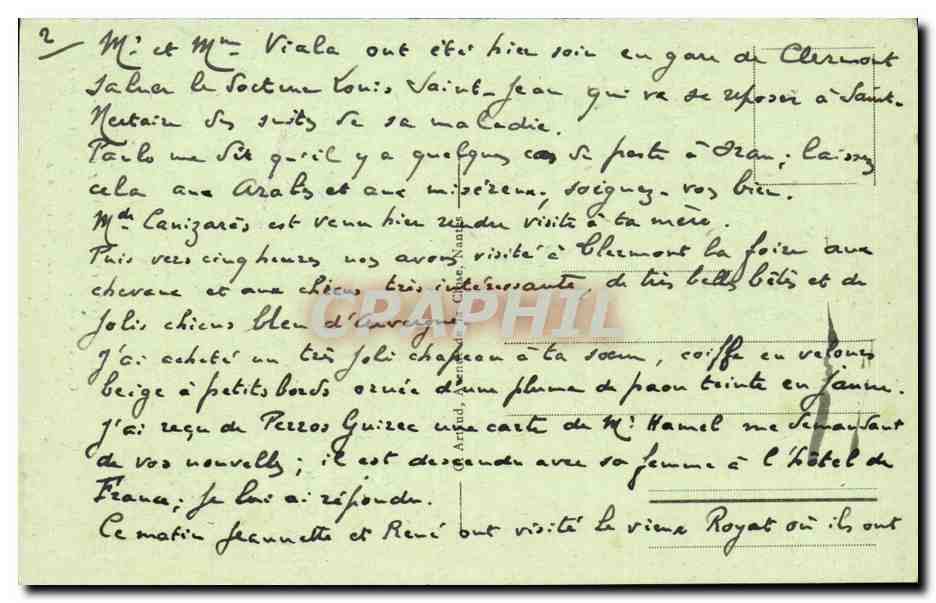 2/
Mr. et Mme Viala ont été hier soir en gare de Clermont
saluer le docteur Louis Saint-Jean qui va se reposer à Saint-
Nectaire des suites de sa maladie.
Paulo me dit qu'il y a quelques cas de peste à Oran; laissez
cela aux Arabes et aux miséreux, soignez-vous bien.
Mde. Canizarès est venu hier rendre visite à ta mère.
Puis vers cinq heures nous avons visité à Clermont la foire aux
chevaux et aux chiens très intéressante, de très belles bêtes et de
jolis chiens bleu d'Auvergne.
J'ai acheté un très joli chapeau à ta sœur, coiffe en velours
beige à petits bords ornée d'une plume de paon teinte en jaune.
J'ai reçu de Perros Guirec une carte de Mr. Hamel me demandant
de vos nouvelles; il est descendu avec sa femme à l'hôtel de
France; je lui ai répondu.
Ce matin Jeannette et René ont visité le vieux Royat où ils ont
Artaud, Avenue de la Close, Nantes
CPAPHIL